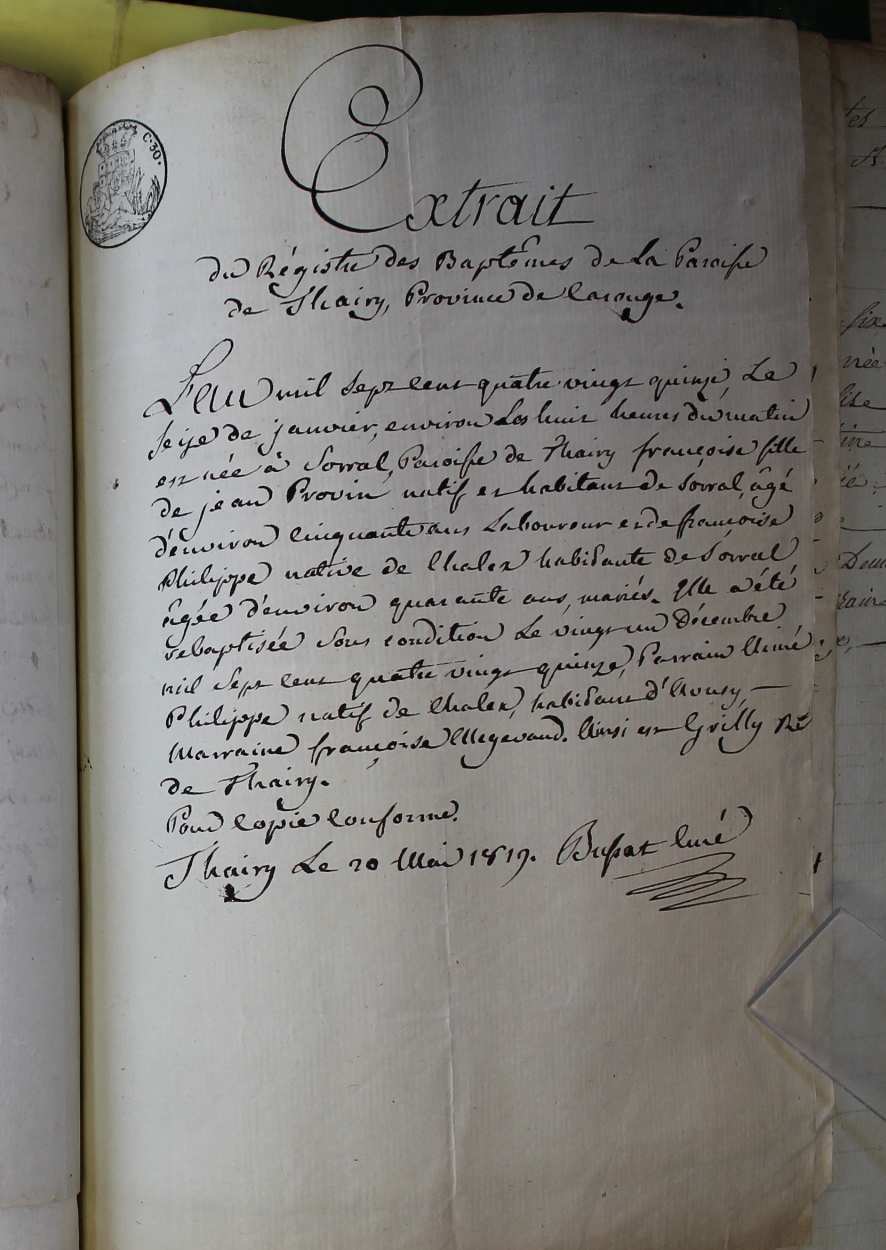 C. 30.
Extrait
du Régistre des Baptêmes de la Paroisse
de Thairy, Province de Carouge.
L'an mil sept cent quatre vingt quinze, Le
seize de janvier, environ Les huit heures du matin
est née à Sorral, Paroisse de Thairy françoise fille
de jean Provin natif et habitant de Sorral, âgé
d'environ cinquante ans Laboureur et de françoise
Philippe native de Chalex habitante de Sorral
âgée d'environ quarante ans, mariés. Elle a été
rebaptisée sous condition Le vingt un décembre
mil sept cent quatre vingt quinze, Parrain Aimé
Philippe natif de Chalex, habitant d'Avusy, —
Marraine françoise Megevand. Ainsi est Grilly Rd
de Thairy.
Pour copie conforme.
Thairy Le 20 Mai 1819. Bussat Curé